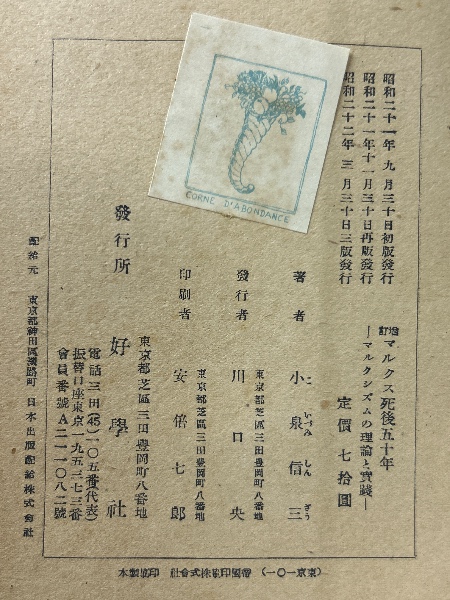 昭和二十一年 九月三十日初版發行
昭和二十一年十一月三十日再版發行
昭和二十二年 三月三十日三版發行
增訂 マルクス死後五十年
―マルクシズムの理論と實踐―
定價 七拾圓
著者 小泉信三
こいづみしんざう
東京都芝區三田豊岡町八番地
發行者 川口央
東京都芝區三田豊岡町八番地
印刷者 安倍七郎
東京都芝區三田豊岡町八番地
發行所 好學社
電話三田(45)一〇五番(代表)
振替口座東京一九五二七三番
會員番號A二一一〇八二號
配給元 東京都神田區淡路町 日本出版配給株式會社
CORNE D'ABONDANCE
(東京一〇一) 帝國印刷株式會社 印刷製本